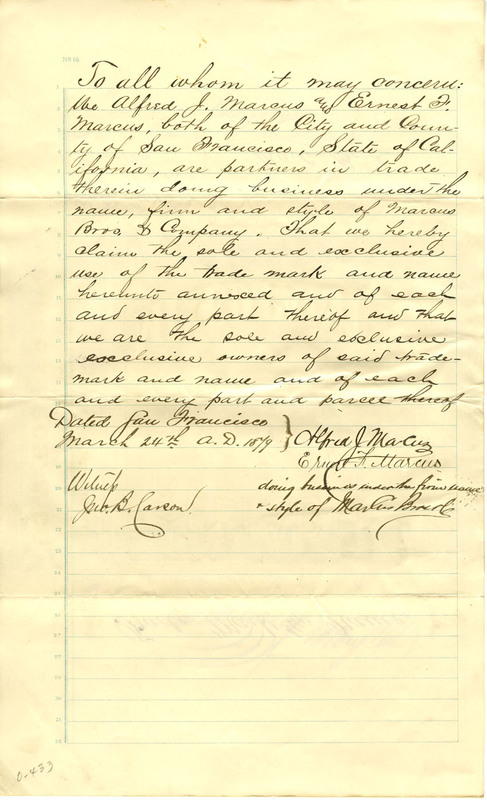 To all whom it may concern:
We Alfred J. Marcus and Ernest F.
Marcus, both of the City and Coun-
ty of San Francisco, State of Cal-
ifornia, are partners in trade
therein doing business under the
name, firm and style of Marcus
Bros. & Company. That we hereby
claim the sole and exclusive
use of the trade mark and name
hereunto annexed and of each
and every part thereof and that
we are the sole and exclusive
exclusive owners of said trade-
mark and name and of each
and every part and parcel thereof
Dated San Francisco
March 24th A.D. 1879 } Alfred J. Marcus
Ernest F. Marcus
Witness
Jno. B. Carson.
doing business under the firm name
& style of Marcus Bros & Co
0-433